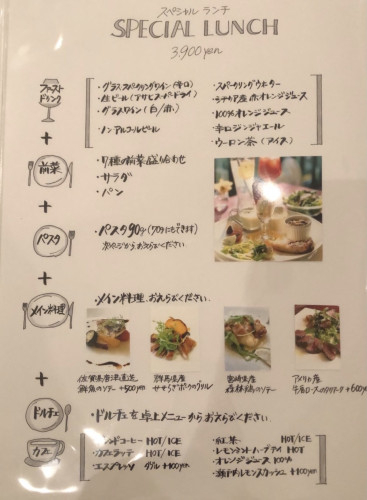 スペシャル ランチ
SPECIAL LUNCH
3,900yen
ファーストドリンク
・グラススパークリングワイン(辛口)
・生ビール(アサヒスーパードライ)
・グラスワイン(白/赤)
・ノンアルコールビール
・スパークリングウォーター
・シチリア産 赤オレンジジュース
・100%オレンジジュース
・辛口ジンジャエール
・ウーロン茶(アイス)
+
前菜
・7種の前菜盛り合わせ
・サラダ
・パン
+
パスタ
・パスタ90g(70gにもできます)
次ページから、おえらびください
+
メイン料理
・メイン料理、おえらびください。
佐賀県唐津直送
鮮魚のソテー +500yen
群馬県産
せせらぎポークのグリル
宮崎県産
森林鶏のソテー
アメリカ産
牛肩ロースのタリアータ +600yen
+
ドルチェ
・ドルチェを卓上メニューからおえらびください。
カフェ
・ブレンドコーヒー HOT/ICE
・カフェラッテ HOT/ICE
・エスプレッソ ダブル +100yen
・紅茶 HOT/ICE
・レモンミントハーブティ HOT
・オレンジジュース 100%
・瀬戸内レモンスカッシュ +100yen